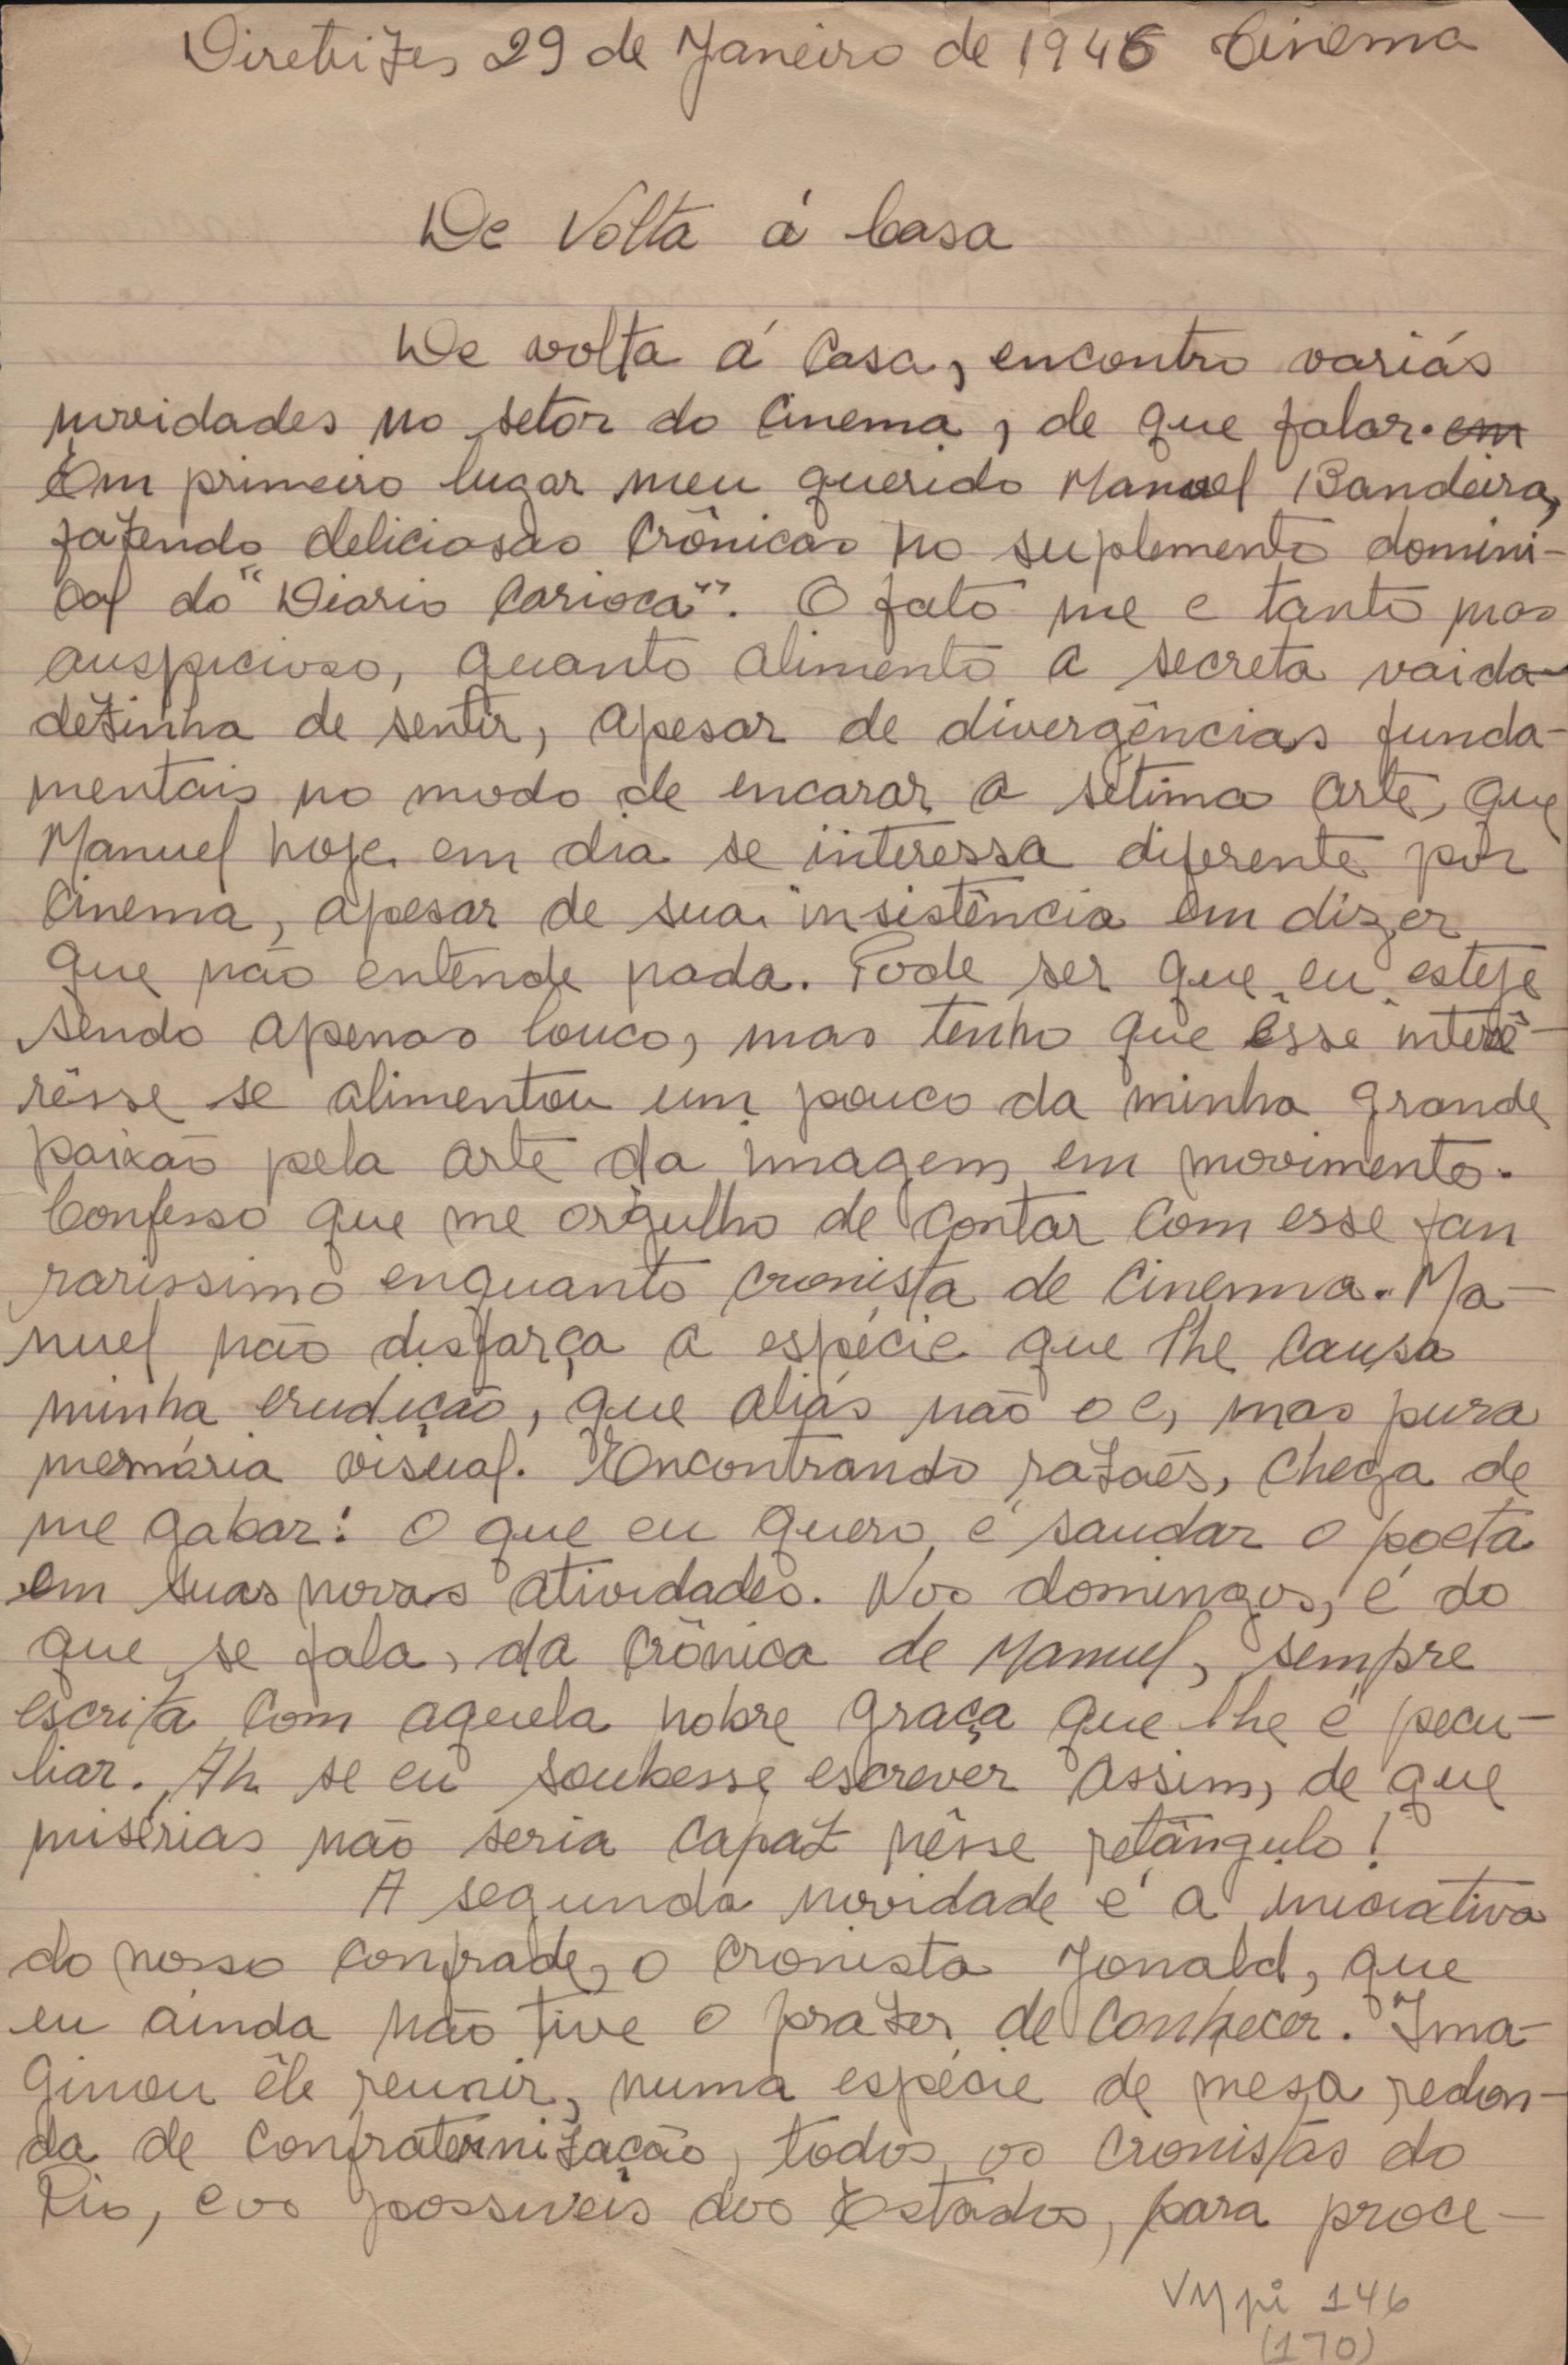 Diretrizes 29 de Janeiro de 1946 Cinema
De Volta á Casa
De volta á casa, encontro variás
novidades no setor do cinema, de que falar. em
Em primeiro lugar meu querido Manuel Bandeira,
fazendo deliciosas crônicas no suplemento domini-
cal do "Diario Carioca". O fato me e tanto mas
auspicioso, quanto alimento a secreta vaida-
dezinha de sentir, apesar de divergências funda-
mentais no modo de encarar a sétima arte, que
Manuel hoje em dia se interessa diferente por
cinema, apesar de sua insistência em dizer
que não entende nada. Pode ser que eu esteje
sendo apenas louco, mas tenho que êsse interê-
rêsse se alimentou um pouco da minha grande
paixão pela arte da imagem em movimento.
Confesso que me orgulho de contar com esse fan
rarissimo enquanto cronista de cinema. Ma-
nuel não disfarça a espécie que lhe causa
minha erudição, que aliás não o e, mas pura
memária visual. Encontrando razões, chega de
me gabar: o que eu quero é saudar o poeta
em suas novas atividades. Nos domingos, é do
que se fala, da crônica de Manuel, sempre
escrita com aquela nobre graça que lhe é pecu-
liar. Ah se eu soubesse escrever assim, de que
misérias não seria capaz nêsse retângulo!
A segunda novidade é a iniciativa
do nosso confrade, o cronista Jonald, que
eu ainda não tive o prazer de conhecer. Ima-
ginou êle reunir, numa espécie de mesa redon-
da de confraternização, todos os cronistas do
Rio, e os possiveis dos Estados, para proce-
VMpi 146
(170)